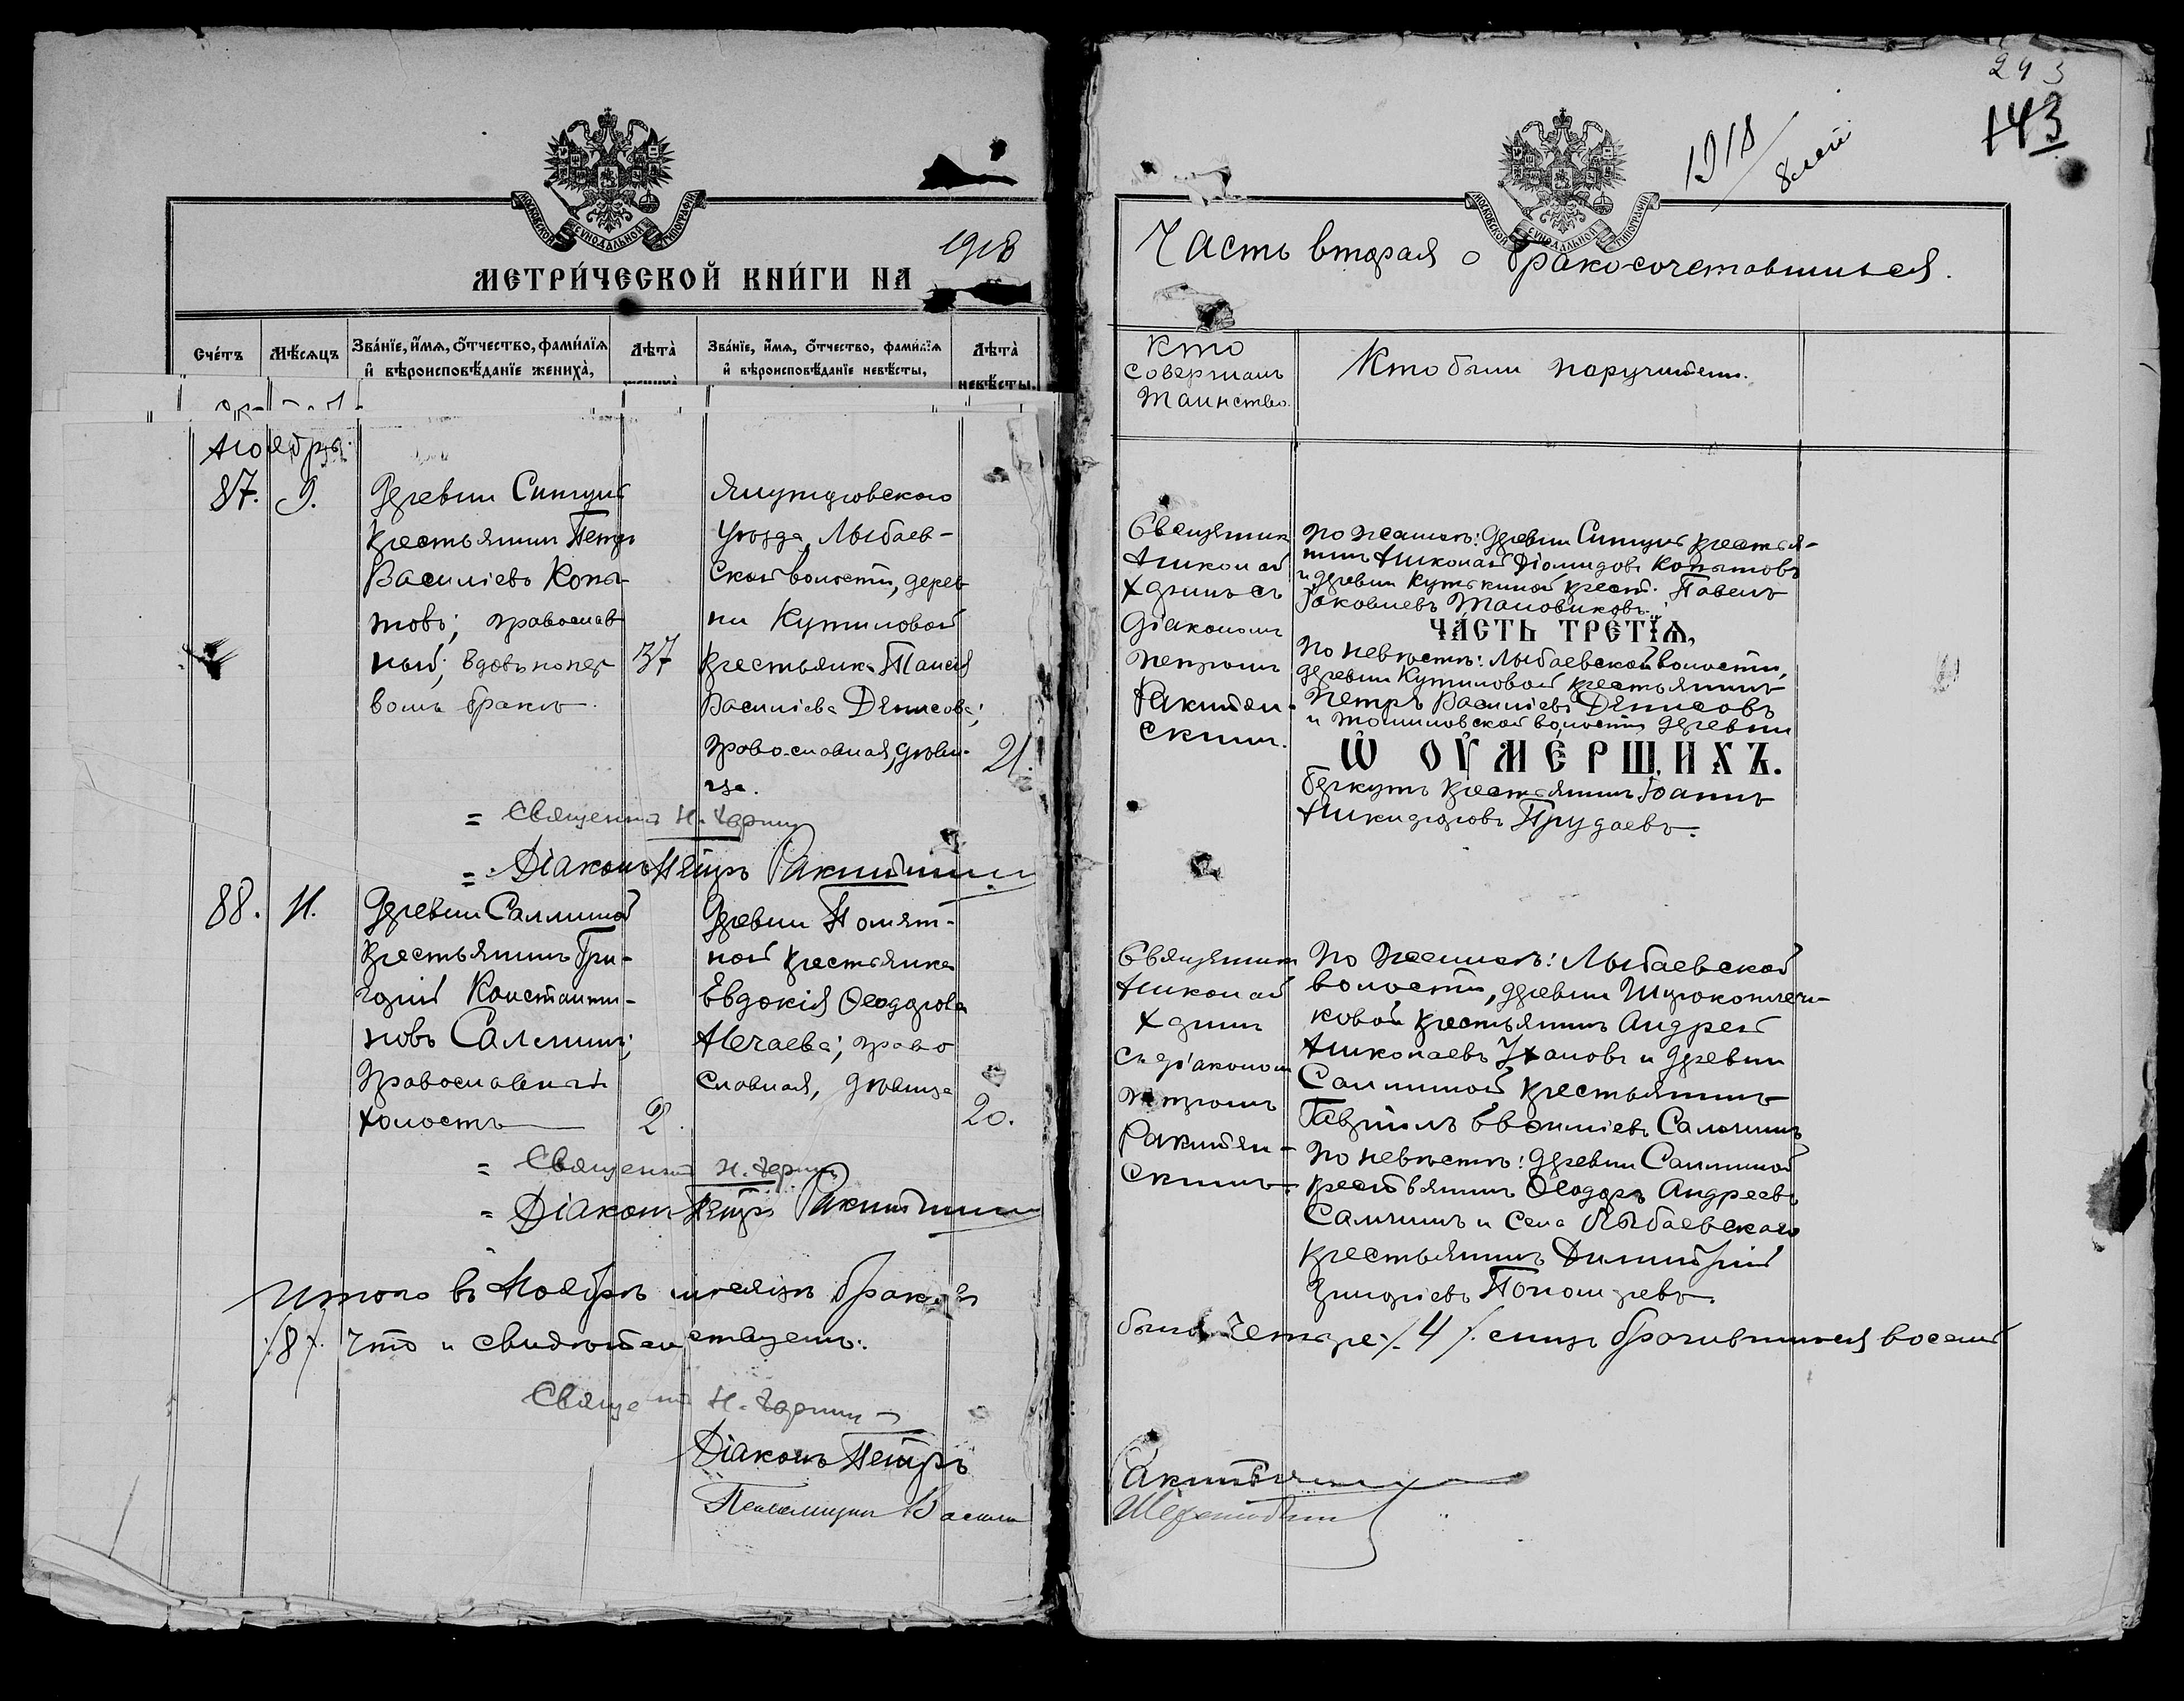 243
143
1918
МОСКОВСКОЙ СѴНОДАЛЬНОЙ ТИПОГРАФІИ
1918
МЕТРИ́ЧЕСКОЙ КНИ́ГИ НА
Сче́тъ
Мѣсяцъ
Зва́нїе, и́мя, о́тчество, фами́лїя
и вѣроисповѣ́данїе жениха̀,
Лѣта̀
жениха̀
Зва́нїе, и́мя, о́тчество, фами́лїя
и вѣроисповѣ́данїе невѣ́сты,
Лѣта̀
невѣ́сты.
Ноябрь
87.
9.
Деревни
крестьянинъ Петръ
Василіевъ Копы-
товъ; православ
ный; вдовъ по пер
вомъ бракѣ.
37
Ялуторовскаго
уѣзда, Лыбаев-
ской волости, дерев
ни Кутиловой
крестьянка Таисія
Василіева Денисова;
православная, дѣви-
ца.
21.
= Священникъ Н.
= Діаконъ Петръ Ракитянскій
88.
11.
Деревни Салминой
крестьянинъ Гри-
горій Константи-
новъ Салминъ;
Православный
холостъ
2
Деревни
ной крестьянка
Евдокія Ѳеодорова
Нечаева; право
славная, дѣвица
20.
= Священникъ Н.
= Діаконъ Петръ Ракитянскій
Итого въ Ноябрѣ мѣсяцѣ браковъ
/8/. что и свидѣтельствуемъ:
Священникъ Н.
Діаконъ Петръ
Псаломщикъ Васили
МОСКОВСКОЙ СѴНОДАЛЬНОЙ ТИПОГРАФІИ
Часть вторая о бракосочетавшихся.
Кто
совершалъ
таинство.
Кто были поручители.
Священникъ
Николай
съ
діакономъ
Петромъ
Ракитян-
скимъ.
По женихѣ: деревни крестья-
нинъ Николай Діомидовъ Копытовъ
и деревни крест. Павелъ
Іаковлевъ
ЧА́СТЬ ТРЕ́ТЇѦ,
По невѣстѣ: Лыбаевской волости,
деревни Кутиловой крестьянинъ
Петръ Василіевъ Денисовъ
и Томиловской волости деревни
Ѽ ОУ҆МЕ́РШИХЪ.
Беркутъ крестьянинъ Іоаннъ
Никифоровъ Прудаевъ.
Священникъ
Николай
съ діакономъ
Петромъ
Ракитян-
скимъ.
По женихѣ: Лыбаевской
волости, деревни Широкоплечи-
ковой крестьянинъ Андрей
Николаевъ Ухаловъ и деревни
Салминой крестьянинъ
Гавріилъ Василіевъ Салминъ
По невѣстѣ: деревни Салминой
крестьянинъ Ѳеодоръ Андреевъ
Салминъ и села Лыбаевскаго
крестьянинъ Димитрій
было четыре /. 4 /. лицъ брачившихся восемь
Ракитянскій